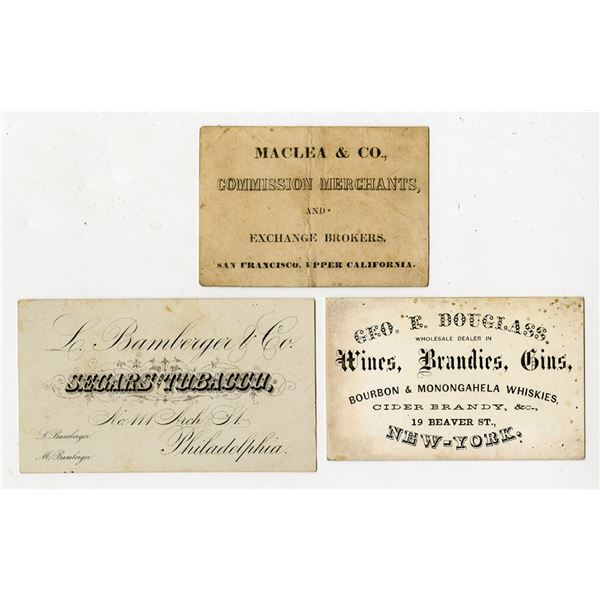 MACLEA & CO.,
COMMISSION MERCHANTS,
AND
EXCHANGE BROKERS,
SAN FRANCISCO, UPPER CALIFORNIA.
L. Bamberger & Co.
SEGARS & TOBACCO,
No. 111 Arch St.
Philadelphia.
L. Bamberger.
M. Bamberger.
GEO. E. DOUGLASS,
WHOLESALE DEALER IN
Wines, Brandies, Gins,
BOURBON & MONONGAHELA WHISKIES,
CIDER BRANDY, &C.,
19 BEAVER ST.,
NEW-YORK.